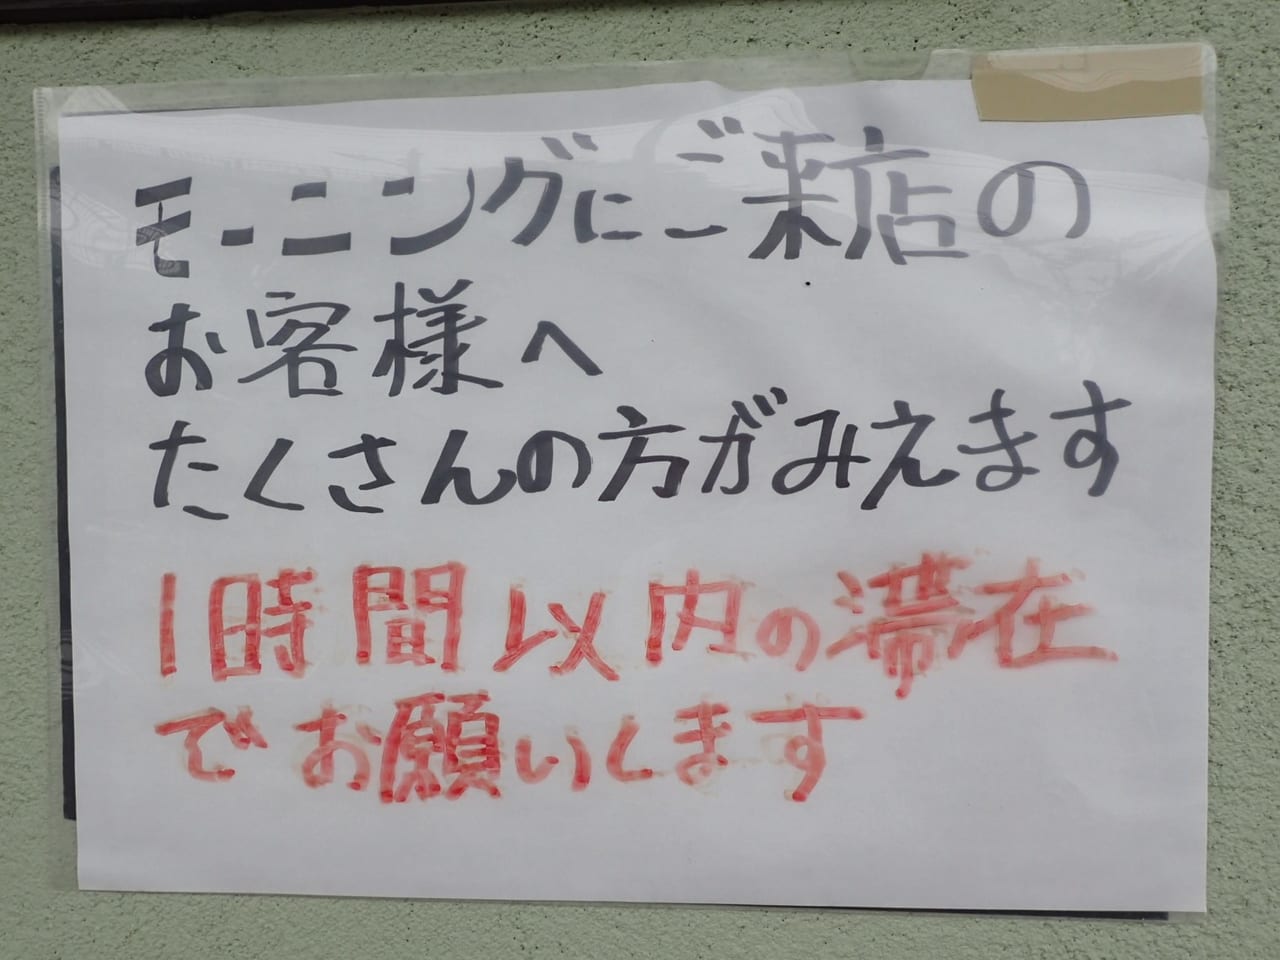 モーニングにご来店の
お客様へ
たくさんの方がみえます
1時間以内の滞在
でお願いします